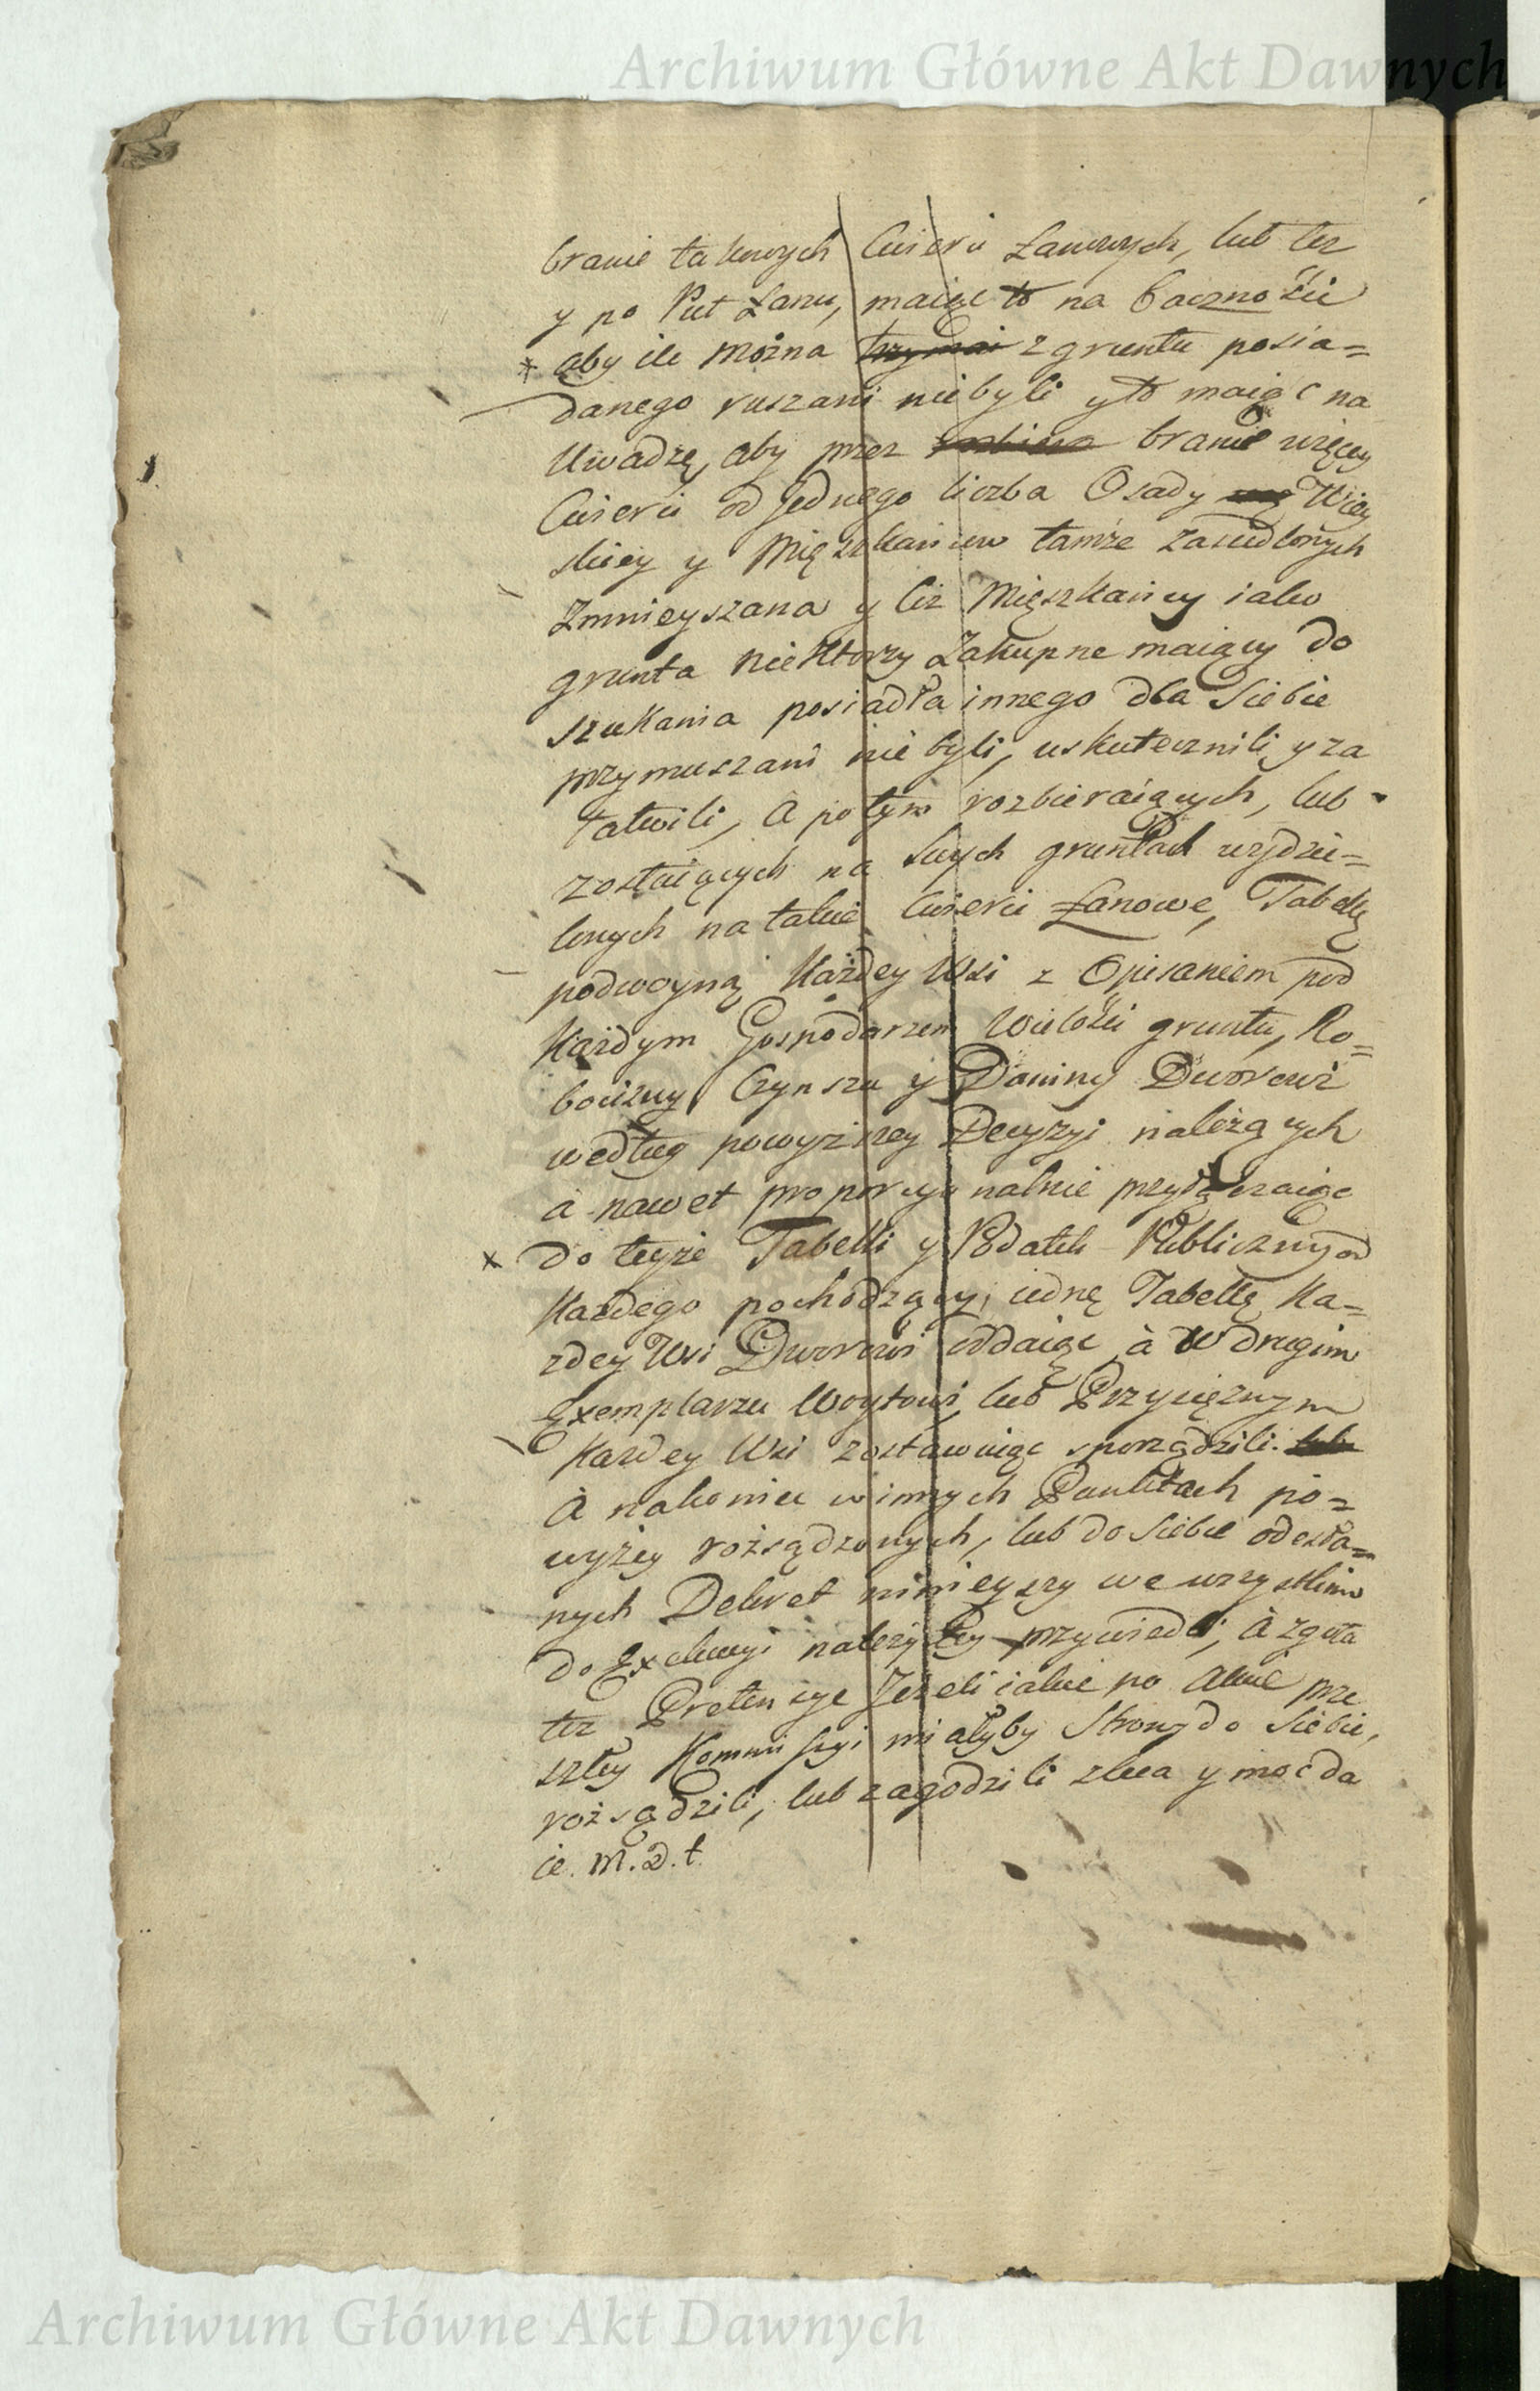 Archiwum Główne Akt Dawnych
branie takowych Cwierci Łanowych, lub tez
y po Puł Łanu, maiąc to na bacznoście
aby ile można trzymać z gruntu posia=
danego ruszani niebyli y to maiąc na
Uwadzę, aby przez branie więcey
Cwierci od jednego liczba Osady Wiey
skiey y Mięszkancow tamże zasiedlonych
Zmnieyszana y ciż Mięszkańcy iako
grunta niektorzy Zakupne maiący do
szukania posiadła innego dla Siebie
przymuszani nie byli, uskutecznili y za
łatwili, A po tym rozbieraiących, lub
zostaiących na swych gruntach wydzie=
lonych na takie Cwierci Łanowe, Tabellę
podwoyną Każdey Wsi z Opisaniem pod
Każdym Gospodarzem Wielości gruntu, Ro=
bocizny Czynszu y Daniny Dworowi
według powyższey Decyzyi należących
a nawet proporcyonalnie przyłączaiąc
do teyże Tabelli y Podatek Publiczny od
Każdego pochodzący, iednę Tabellę Ka=
zdey Wsi Dworowi oddaiąc à w drugim
Exemplarzu Woytowi, lub Przysięznym
Kazdey Wsi zostawuiąc sporządzili.
A nakoniec w innych Punktach po=
wyżey rozsądzonych, lub do Siebie odesła=
nych Dekret ninieyszy we wszystkim
do Exekucyi należytey przywiedli, A zgoła
też Pretensye Jeżeli iakie po Akcie prze
szłey Kommissyi miałyby Strony do Siebie,
rozsądzili, lub zagodzili zleca y moc da
ie. M. D. t.
Archiwum Główne Akt Dawnych